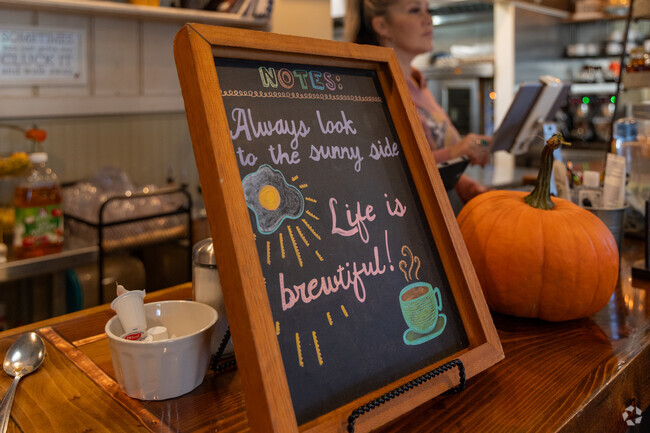 SOMETIMES
CLUCK IT
NOTES:
Always look
to the sunny side
Life is
brewtiful!